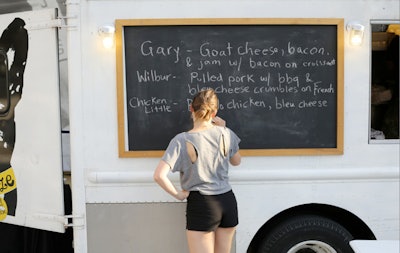 Gary - Goat cheese, bacon,
& jam w/ bacon on croissant
Wilbur - Pulled pork w/ bbq &
bleu cheese crumbles on French
Chicken Little - chicken, bleu cheese